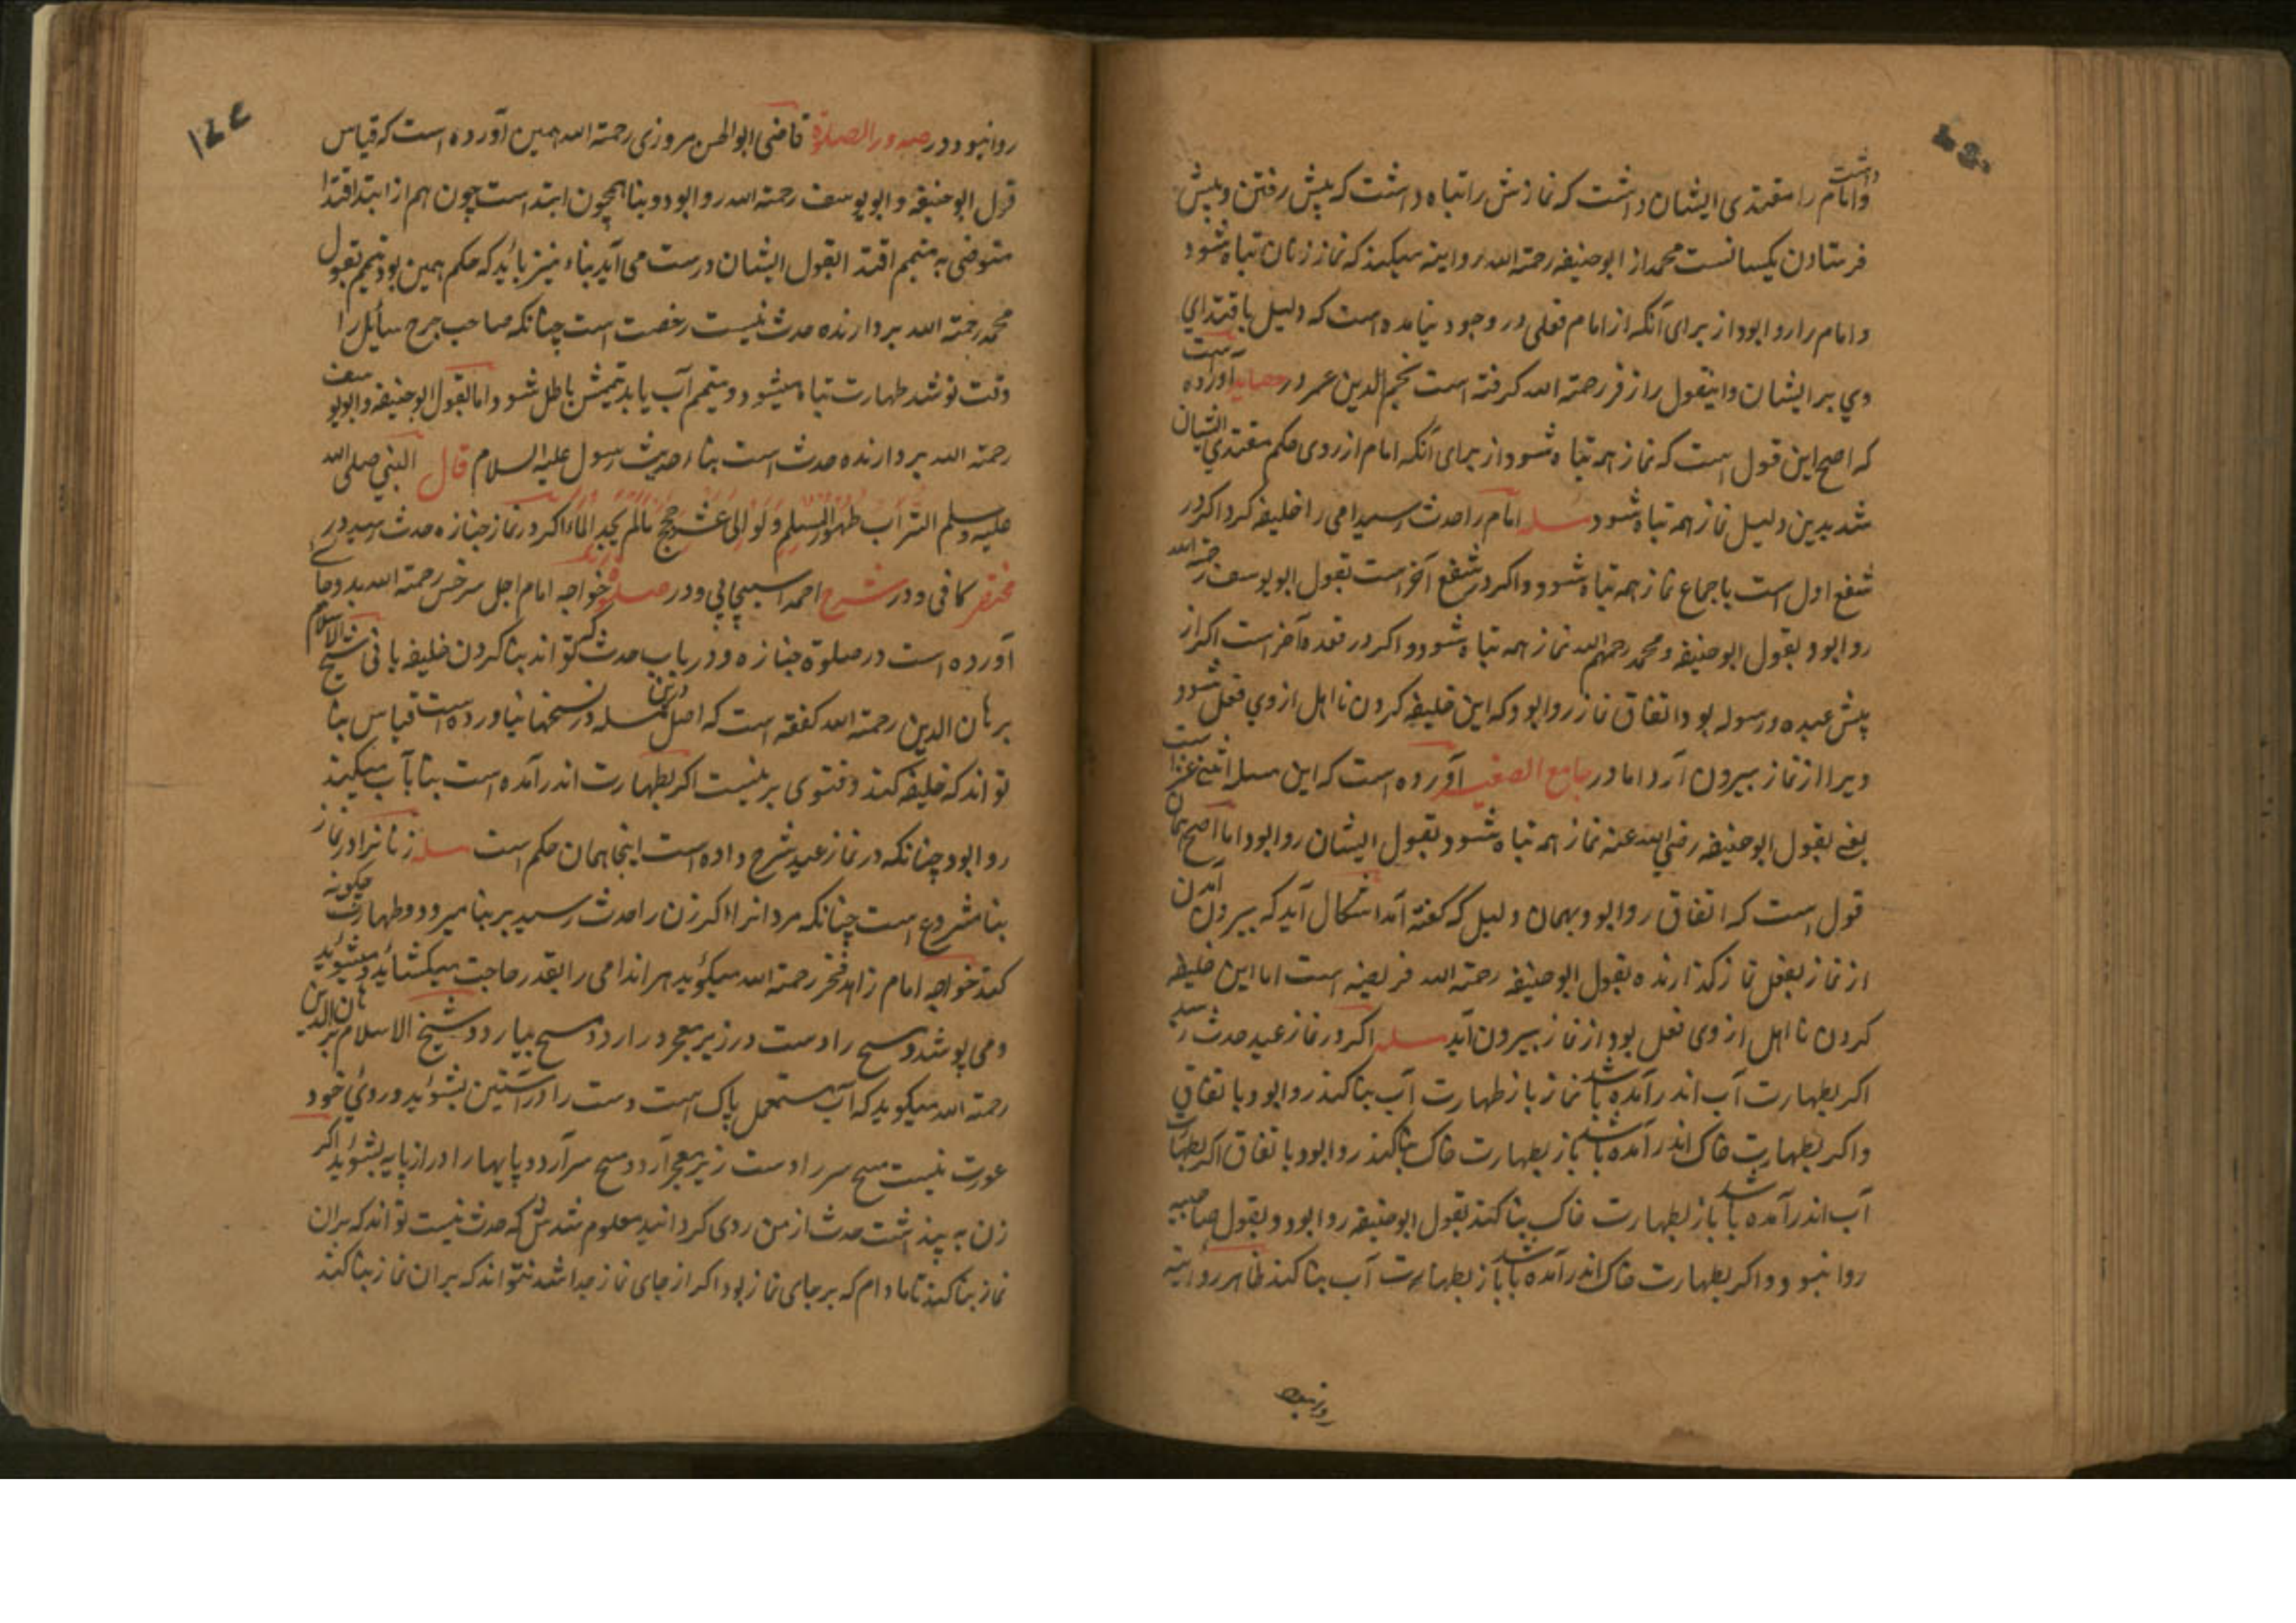 وامام را مقتدی ایشان داشت که نمازش را تباه داشت که پیش رفتن و پیش داشت
فرستادن یکسانست محمد از ابوحنیفه رحمة الله روایته میکند که نماز زنان تباه شود
و امام را روا بود از برای آنکه از امام فعلی در وجود نیامده است که دلیل باقتدای
وی بر ایشان و اینقول را زفر رحمة الله کرفته است نجم الدین عمر در آورده است
که اصح این قول است که نماز همه تباه شود از برای آنکه امام از روی حکم مقتدی ایشان
شد بدین دلیل نماز همه تباه شود مسله امام را حدث رسید امی را خلیفه کرد اکر در
شفع اول است باجماع نماز همه تباه شود و اکر در شفع آخر است بقول ابویوسف رحمة الله
روا بود بقول ابوحنیفه و محمد رحمهم الله نماز همه تباه شود و اکر در قعده آخر است اکر از
پیش عبده و رسوله بود اتفاق نماز روا بود که این خلیفه کردن نا اهل از وی فعل شود
ویرا از نماز بیرون آرد اما در جامع الصغیر آورده است که این مسله اثنی عشر است
یعنی بقول ابوحنیفه رضی الله عنه نماز همه تباه شود بقول ایشان روا بود اما اصح همان
قول است که اتفاق روا بود و بهمان دلیل که کفته آمد اشکال آید که بیرون آمدن
از نماز بفعل نماز کذارنده بقول ابوحنیفه رحمة الله فریضه است اما این خلیفه
کردن نا اهل از وی فعل بود از نماز بیرون آید مسله اکر در نماز عید حدث رسید
اکر بطهارت آب اندر آمده باشد نماز باز طهارت آب بنا کند روا بود باتفاق
و اکر بطهارت خاک اندر آمده باشد باز بطهارت خاک بنا کند روا بود باتفاق اکر بطهارت
آب اندر آمده باشد باز بطهارت خاک بنا کند بقول ابوحنیفه روا بود و بقول صاحبیه
روا نبود و اکر بطهارت خاک اندر آمده باشد باز بطهارت آب بنا کند ظاهر روایته
روا نبود
۱۲۷
روا نبود و در صدور الصلوة قاضی ابوالحسن مروزی رحمة الله همین آورده است که قیاس
قول ابوحنیفه و ابویوسف رحمة الله روا بود و بنا همچون ابتداست چون هم از ابتدا اقتدا
متوضی به متیمم اقتدا بقول ایشان درست می آید بناء نیز باید که حکم همین بود تیمم بقول
محمد رحمة الله بردارنده حدث نیست رخصت است چنانکه صاحب جرح سائل را
وقت نو شد طهارت تباه میشود و متیمم آب یابد تیممش باطل شود و اما بقول ابوحنیفه و ابویوسف
رحمة الله بردارنده حدث است بناء حدیث رسول علیه السلام قال النبی صلی الله
علیه وسلم التراب طهور المسلم ولو الی عشر حجج مالم یجد الماء اکر در نماز جنازه حدث رسید در
مختصر کافی و در شرح احمد اسبیجابی و در صلوة خواجه امام اجل سرخس رحمة الله بدو جای
آورده است در صلوة جنازه و در باب حدث که تواند بنا کردن خلیفه یا نی شیخ الاسلام
برهان الدین رحمة الله کفته است که اصل این مسله در نسختها نیاورده است قیاس بنا
تواند که خلیفه کند و فتوی برینست اکر بطهارت اندر آمده است بنا بآب میکند
روا بود چنانکه در نماز عید شرح داده است اینجا همان حکم است مسله زنانرا در نماز
بنا مشروع است چنانکه مردانرا اکر زن را حدث رسید بر بنا میرود و طهارت چکونه
کند خواجه امام زاهد فخر رحمة الله میکوید هر اندامی را بقدر حاجت میکشاید و میشوید
و می پوشد و مسح را دست در زیر معجر در ارد و مسح بیارد و شیخ الاسلام برهان الدین
رحمة الله میکوید که آب مستعمل پاک است دست را در آستین بشوید و روی خود
عورت نیست مسح سر را دست زیر معجر آرد و مسح سر آرد و پایها را در از پایه بشوید اکر
زن به پنداشت حدث از من روی کردانید معلوم شدش که حدث نیست تواند که بران
نماز بنا کند تا مادام که بر جای نماز بود اکر از جای نماز جدا شد نتواند که بران نماز بنا کند